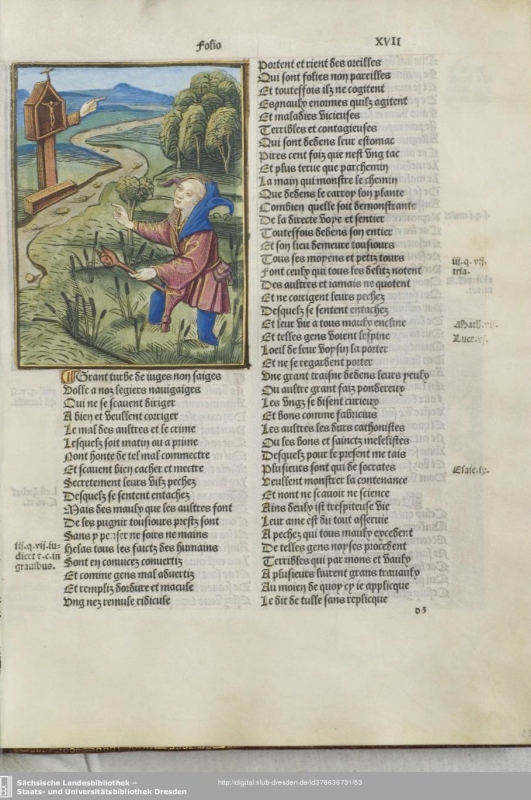 Folio
XVII
Grant turbe de iuges non saiges
Volle a noz legiers nauigaiges
Qui ne se scauent diriger
A bien et veullent corriger
Le mal des aultres et le crime
Lesquelz soit matin ou a prime
Nont honte de tel mal commectre
Et scauent bien cacher et mectre
Secretement leurs vilz pechez
Desquelz se sentent entachez
Mais des maulx que les aultres font
De les pugnir tousiours prestz sont
Sans y penser ne soirs ne mains
Helas tous les faictz des humains
Sont en conuicez conuertiz
Et comme gens mal aduertiz
Et rempliz dordure et macule
Ung nez remule ridicule
iii.q.vii.iu-
dicet &.c.in
grauibus.
Portent et rient des oreilles
Qui sont folies non pareilles
Et toutesfois ilz ne cogitent
Es maulx enormes quilz agitent
Et maladies vicieuses
Terribles et contagieuses
Qui sont dedens leur estomac
Pires cent foiz que nest ung tac
Et plus terue que parchemin
La main qui monstre le chemin
Que dedens le carrop lon plante
Combien quelle soit demonstrante
De la directe voye et sentier
Toutesfois dedens son entier
Et son lieu demeure tousiours
Tous ses moyens et petiz tours
Font ceulx qui tous les delitz notent
Des aultres et iamais ne quotent
Et ne corrigent leurs pechez
Desquelz se sentent entachez
Et leur vie a tous maulx encline
Et telles gens voient lespine
Loeil de leur voysin la porter
Et ne se regardent porter
Une grant traisne dedens leurs yeulx
Ou aultre grant faiz pondereux
Les ungz se disent curieux
Et bons comme fabricius
Les aultres les durs cathonistes
Ou les bons et sainctz metelistes
Desquelz pour le present me tais
Plusieurs sont qui de socrates
Veullent monstrer la contenance
Et nont ne scauoir ne science
Ains deulx ist trespiteuse vie
Leur ame est du tout asseruie
A pechez qui tous maulx excedent
De telles gens noyses procedent
Terribles qui par mons et vaulx
A plusieurs liurent grans trauaulx
Au moien de quoy cy ie applicque
Le dit de tulle sans replicque
iii.q.vii.
tria.
Math.vii.
Luce.vi.
Esaie.ix.
d5
Sächsische Landesbibliothek –
Staats- und Universitätsbibliothek Dresden
http://digital.slub-dresden.de/id378636731/53